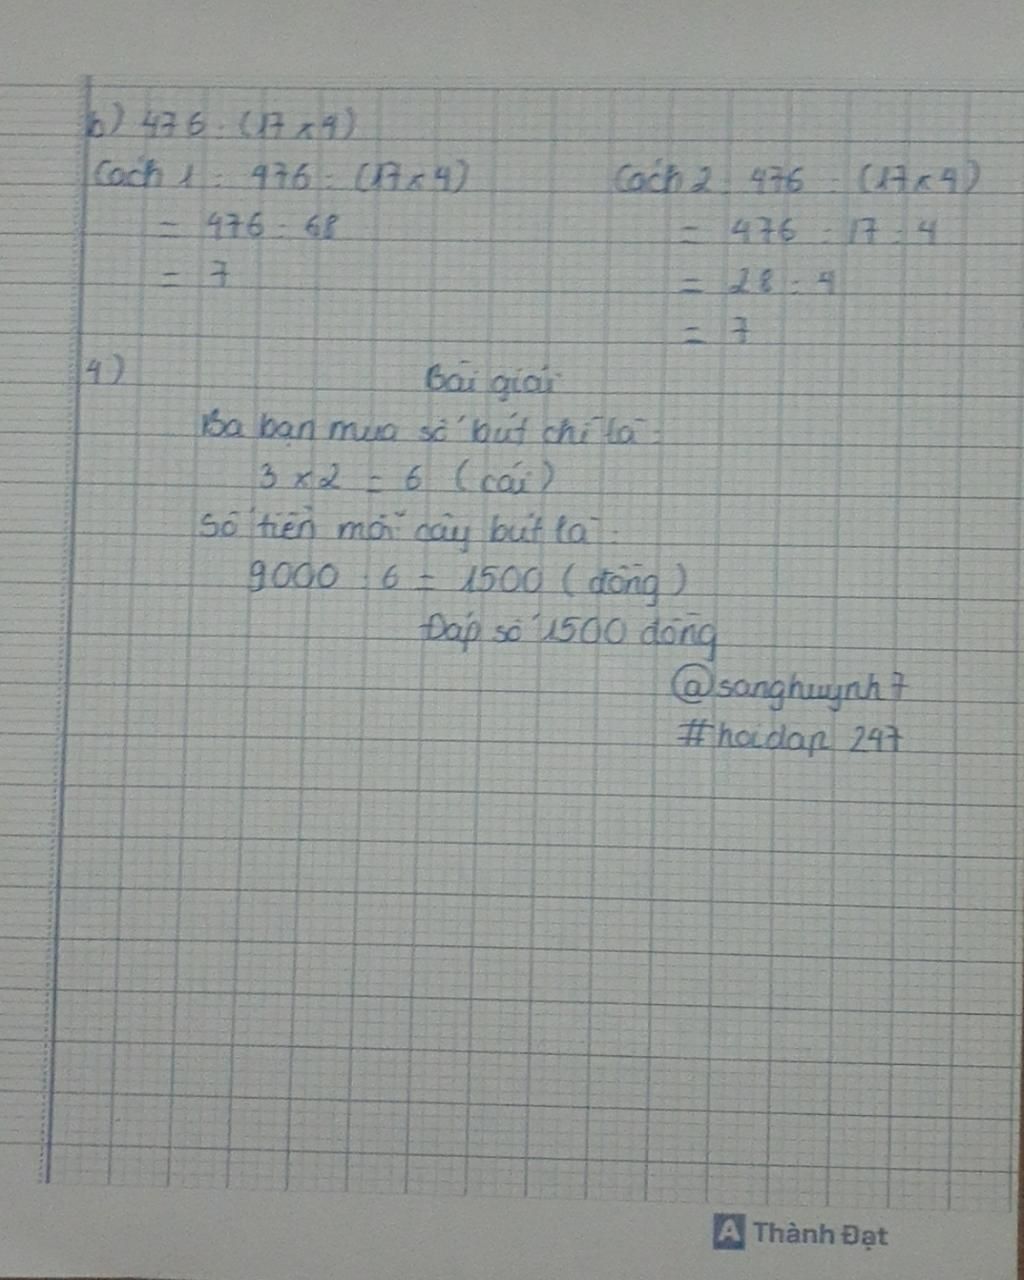 b) 476 : (17 x 4)
Cách 1 : 476 : (17 x 4)
= 476 : 68
= 7
Cách 2 : 476 : (17 x 4)
= 476 : 17 : 4
= 28 : 4
= 7
4) Bài giải
Ba bạn mua số bút chì là :
3 x 2 = 6 (cái)
Số tiền mỗi cây bút là :
9000 : 6 = 1500 (đồng)
Đáp số 1500 đồng
@sanghuynh7
#hoidap 247
A Thành Đạt